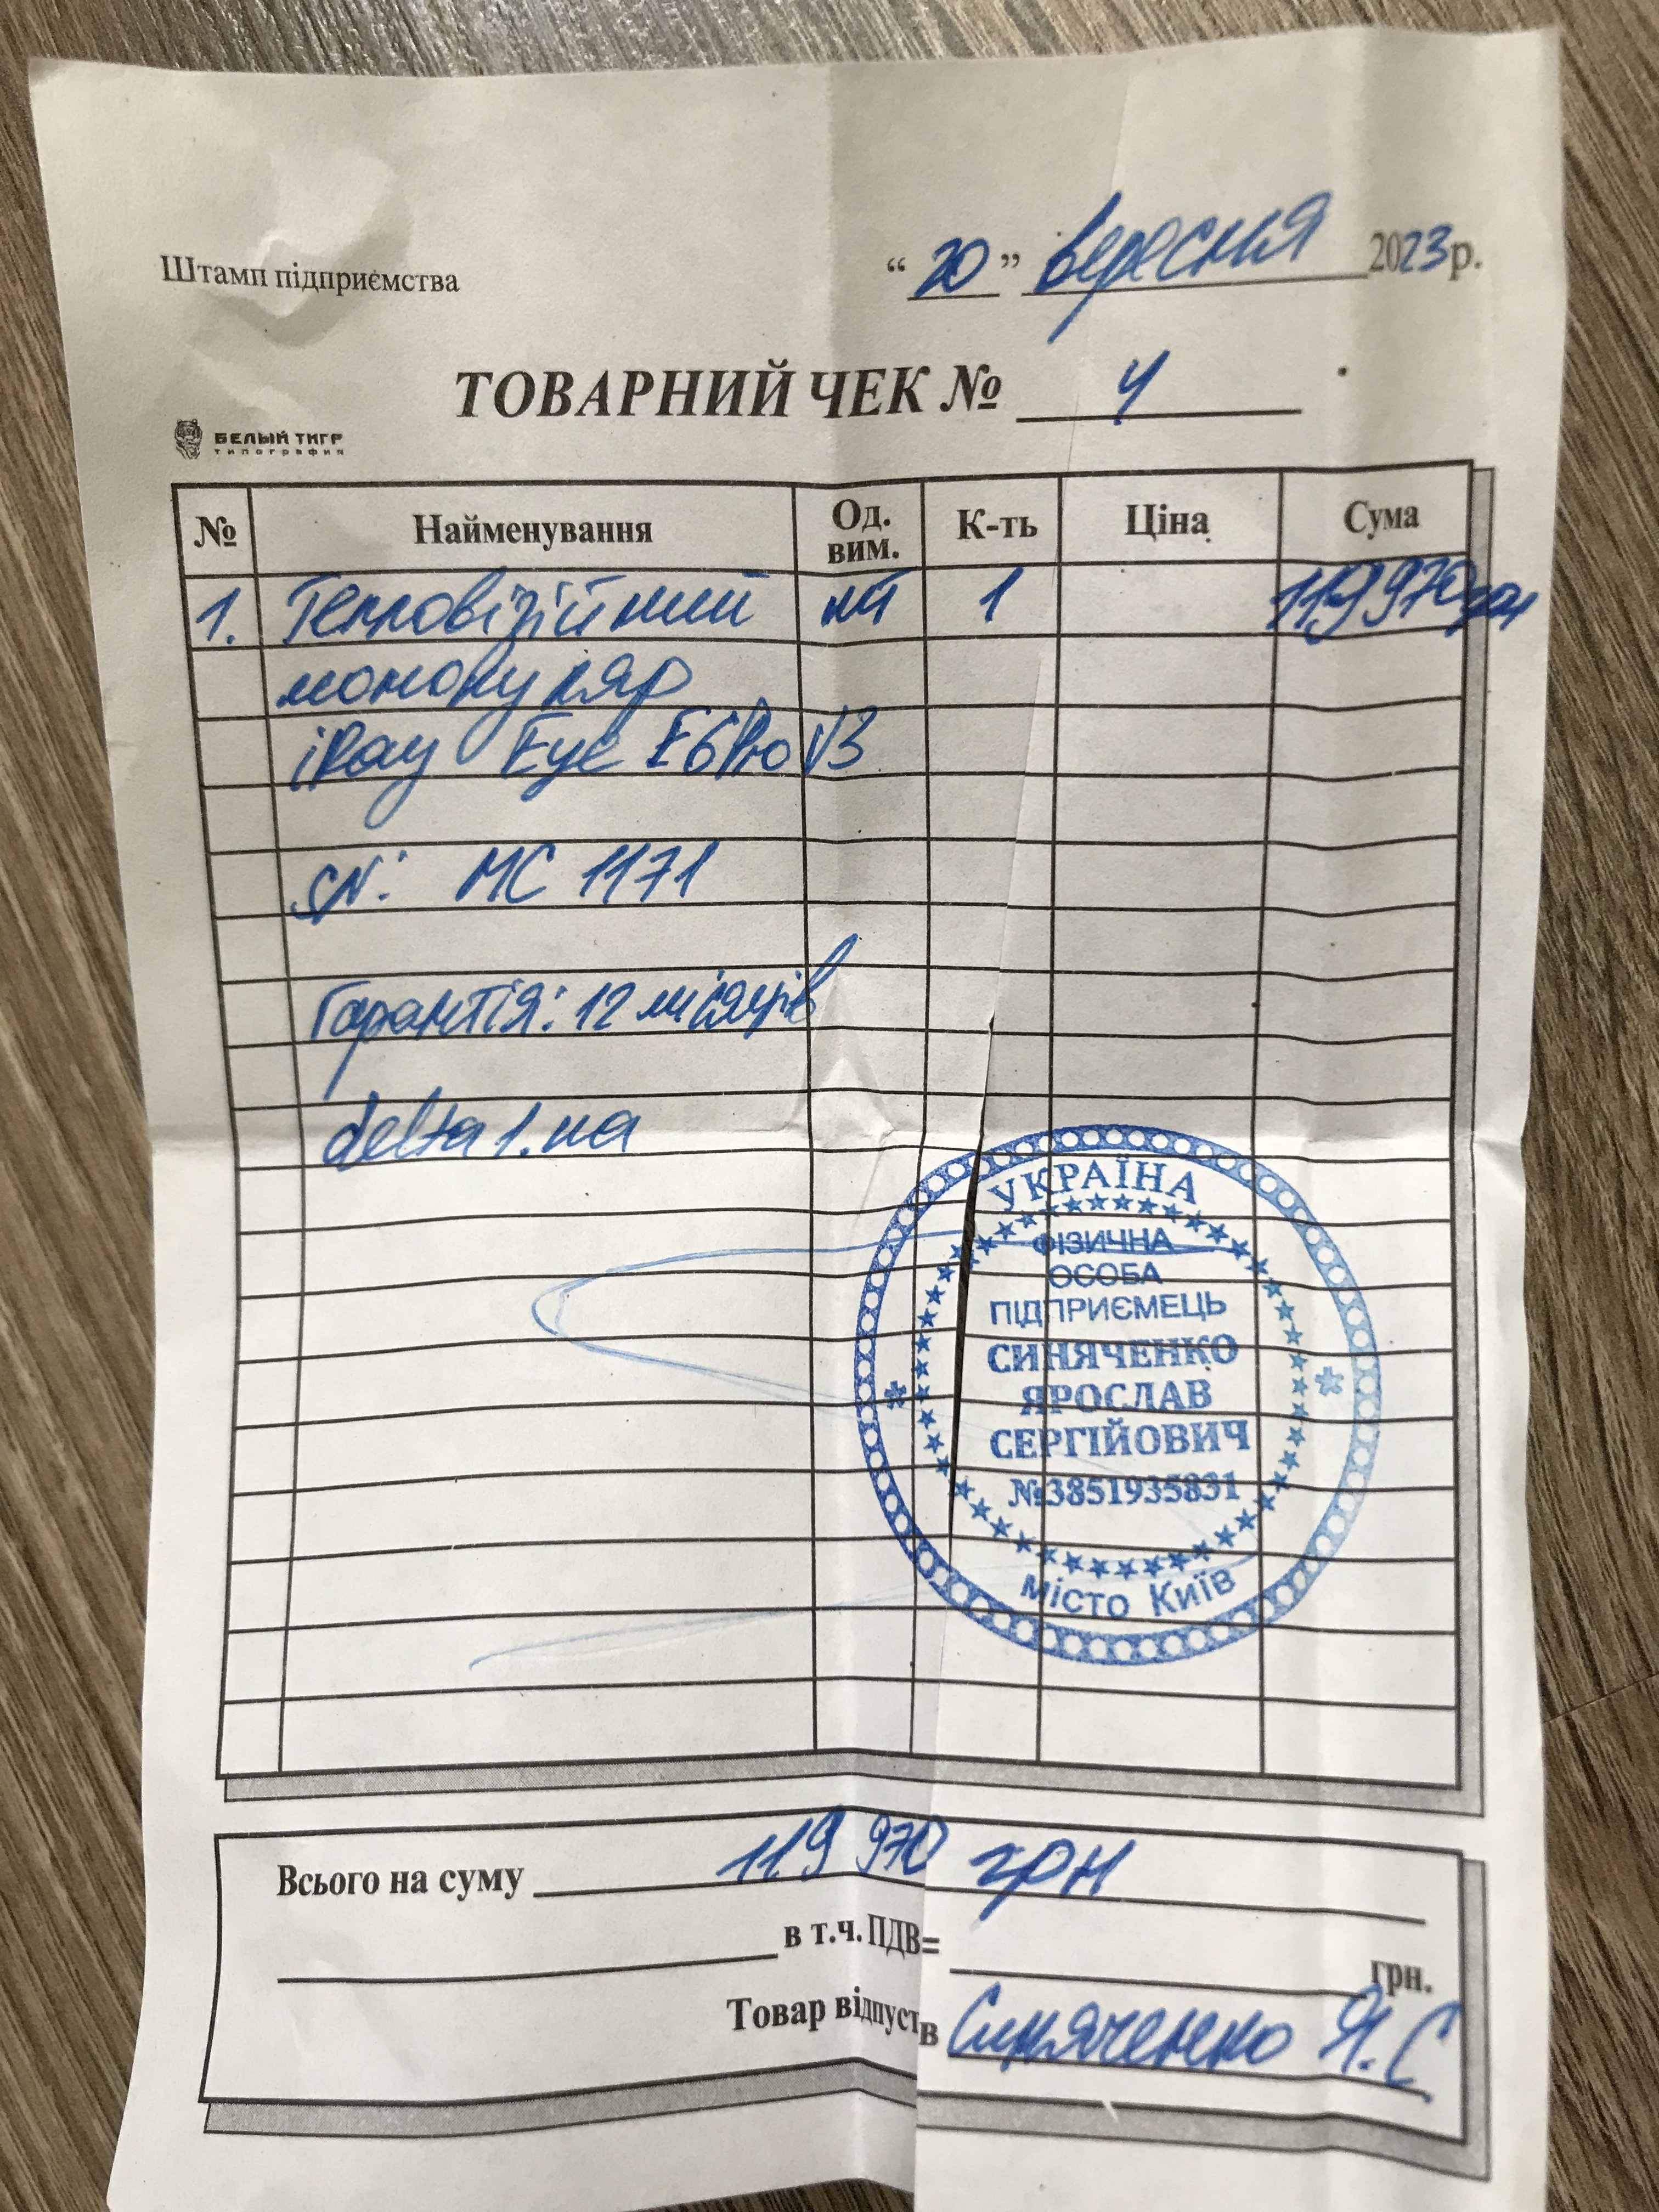 Штамп підприємства
“20” вересня 2023р.
ТОВАРНИЙ ЧЕК № 4
БЕЛЫЙ ТИГР
типография
№ Найменування Од. вим. К-ть Ціна Сума
1. Тепловізійний шт 1 119 970 грн
монокуляр
iRay Eye E6Pro V3
SN: MC 1171
Гарантія: 12 місяців
delta1.ua
УКРАЇНА
ФІЗИЧНА
ОСОБА
ПІДПРИЄМЕЦЬ
СИНЯЧЕНКО
ЯРОСЛАВ
СЕРГІЙОВИЧ
№3851935831
місто Київ
Всього на суму 119 970 грн
в т.ч. ПДВ= грн.
Товар відпуств Синяченко Я.С